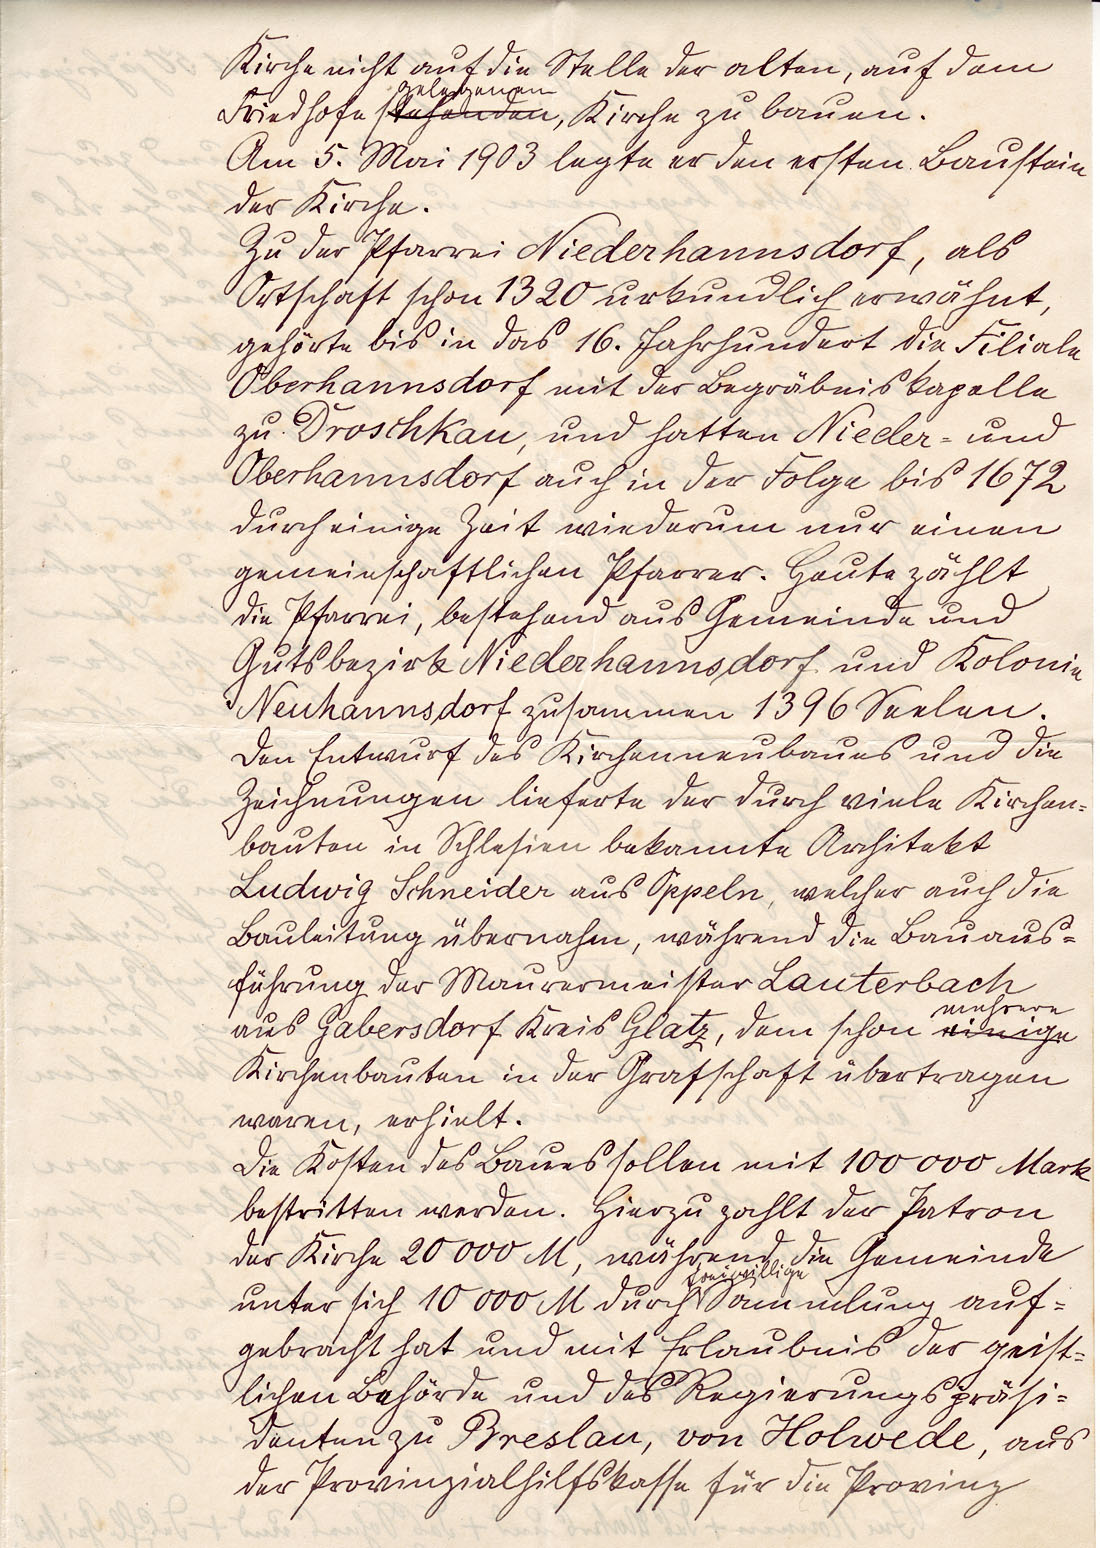 Kirche nicht auf die Stelle der alten, auf dem
gelegenen
Friedhofe stehenden, Kirche zu bauen.
Am 5. Mai 1903 legte er den ersten Baustein
der Kirche.
Zu der Pfarrei Niederhannsdorf, als
Ortschaft schon 1320 urkundlich erwähnt,
gehörte bis in das 16. Jahrhundert die Filiale
Oberhannsdorf mit der Begräbniskapelle
zu Droschkau, und hatten Nieder- und
Oberhannsdorf auch in der Folge bis 1672
durch einige Zeit wiederum nur einen
gemeinschaftlichen Pfarrer. Heute zählt
die Pfarrei, bestehend aus Gemeinde und
Gutsbezirk Niederhannsdorf und Kolonie
Neuhannsdorf zusammen 1396 Seelen.
Den Entwurf des Kirchenneubaues und die
Zeichnungen lieferte der durch viele Kirchen-
bauten in Schlesien bekannte Architekt
Ludwig Schneider aus Oppeln, welcher auch die
Bauleitung übernahm, während die Bauaus-
führung der Maurermeister Lauterbach
mehrere
aus Gabersdorf Kreis Glatz, dem schon einige
Kirchenbauten in der Grafschaft übertragen
waren, erhielt.
Die Kosten des Baues sollen mit 100 000 Mark
bestritten werden. Hierzu zahlt der Patron
der Kirche 20 000 M, während die Gemeinde
freiwillige
unter sich 10 000 M durch Sammlung auf-
gebracht hat und mit Erlaubnis der geist-
lichen Behörde und des Regierungspräsi-
denten zu Breslau, von Holwede, aus
der Provinzialhilfskasse für die Provinz